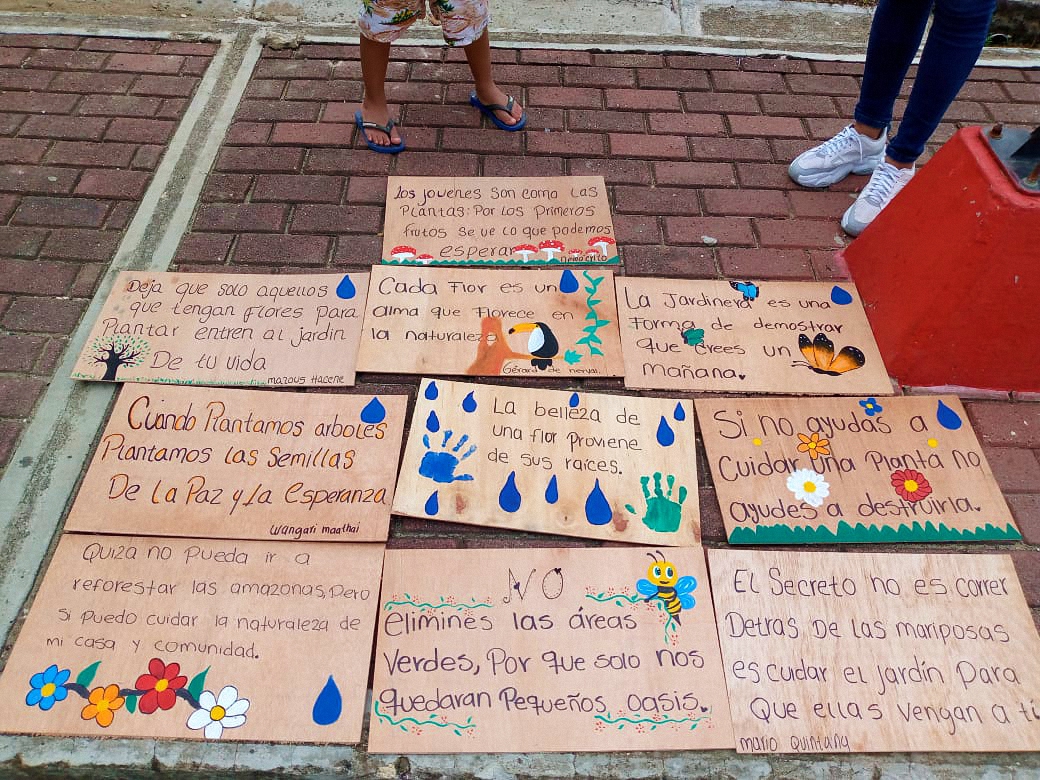 Los jovenes son como Las
Plantas: Por los Primeros
frutos se ve lo que podemos
esperar
Democrito
Deja que solo aquellos
que tengan flores para
Plantar entren al jardin
De tu vida
Cada Flor es un
alma que Florece en
la naturaleza
Gérard de nerval.
La Jardinera es una
Forma de demostrar
que crees un
mañana.
Cuando Plantamos arboles
Plantamos las Semillas
De La Paz y La Esperanza
Wangari maathai
La belleza de
una flor Proviene
de sus raíces.
Si no ayudas a
Cuidar una Planta no
ayudes a destruirla.
Quiza no Pueda ir a
reforestar las amazonas, Pero
si puedo cuidar la naturaleza de
mi casa y comunidad.
NO
elimines las áreas
verdes, Por que solo nos
quedaran Pequeños oasis.
El Secreto no es correr
Detras De las mariposas
es cuidar el jardín Para
Que ellas vengan a ti
mario Quintana